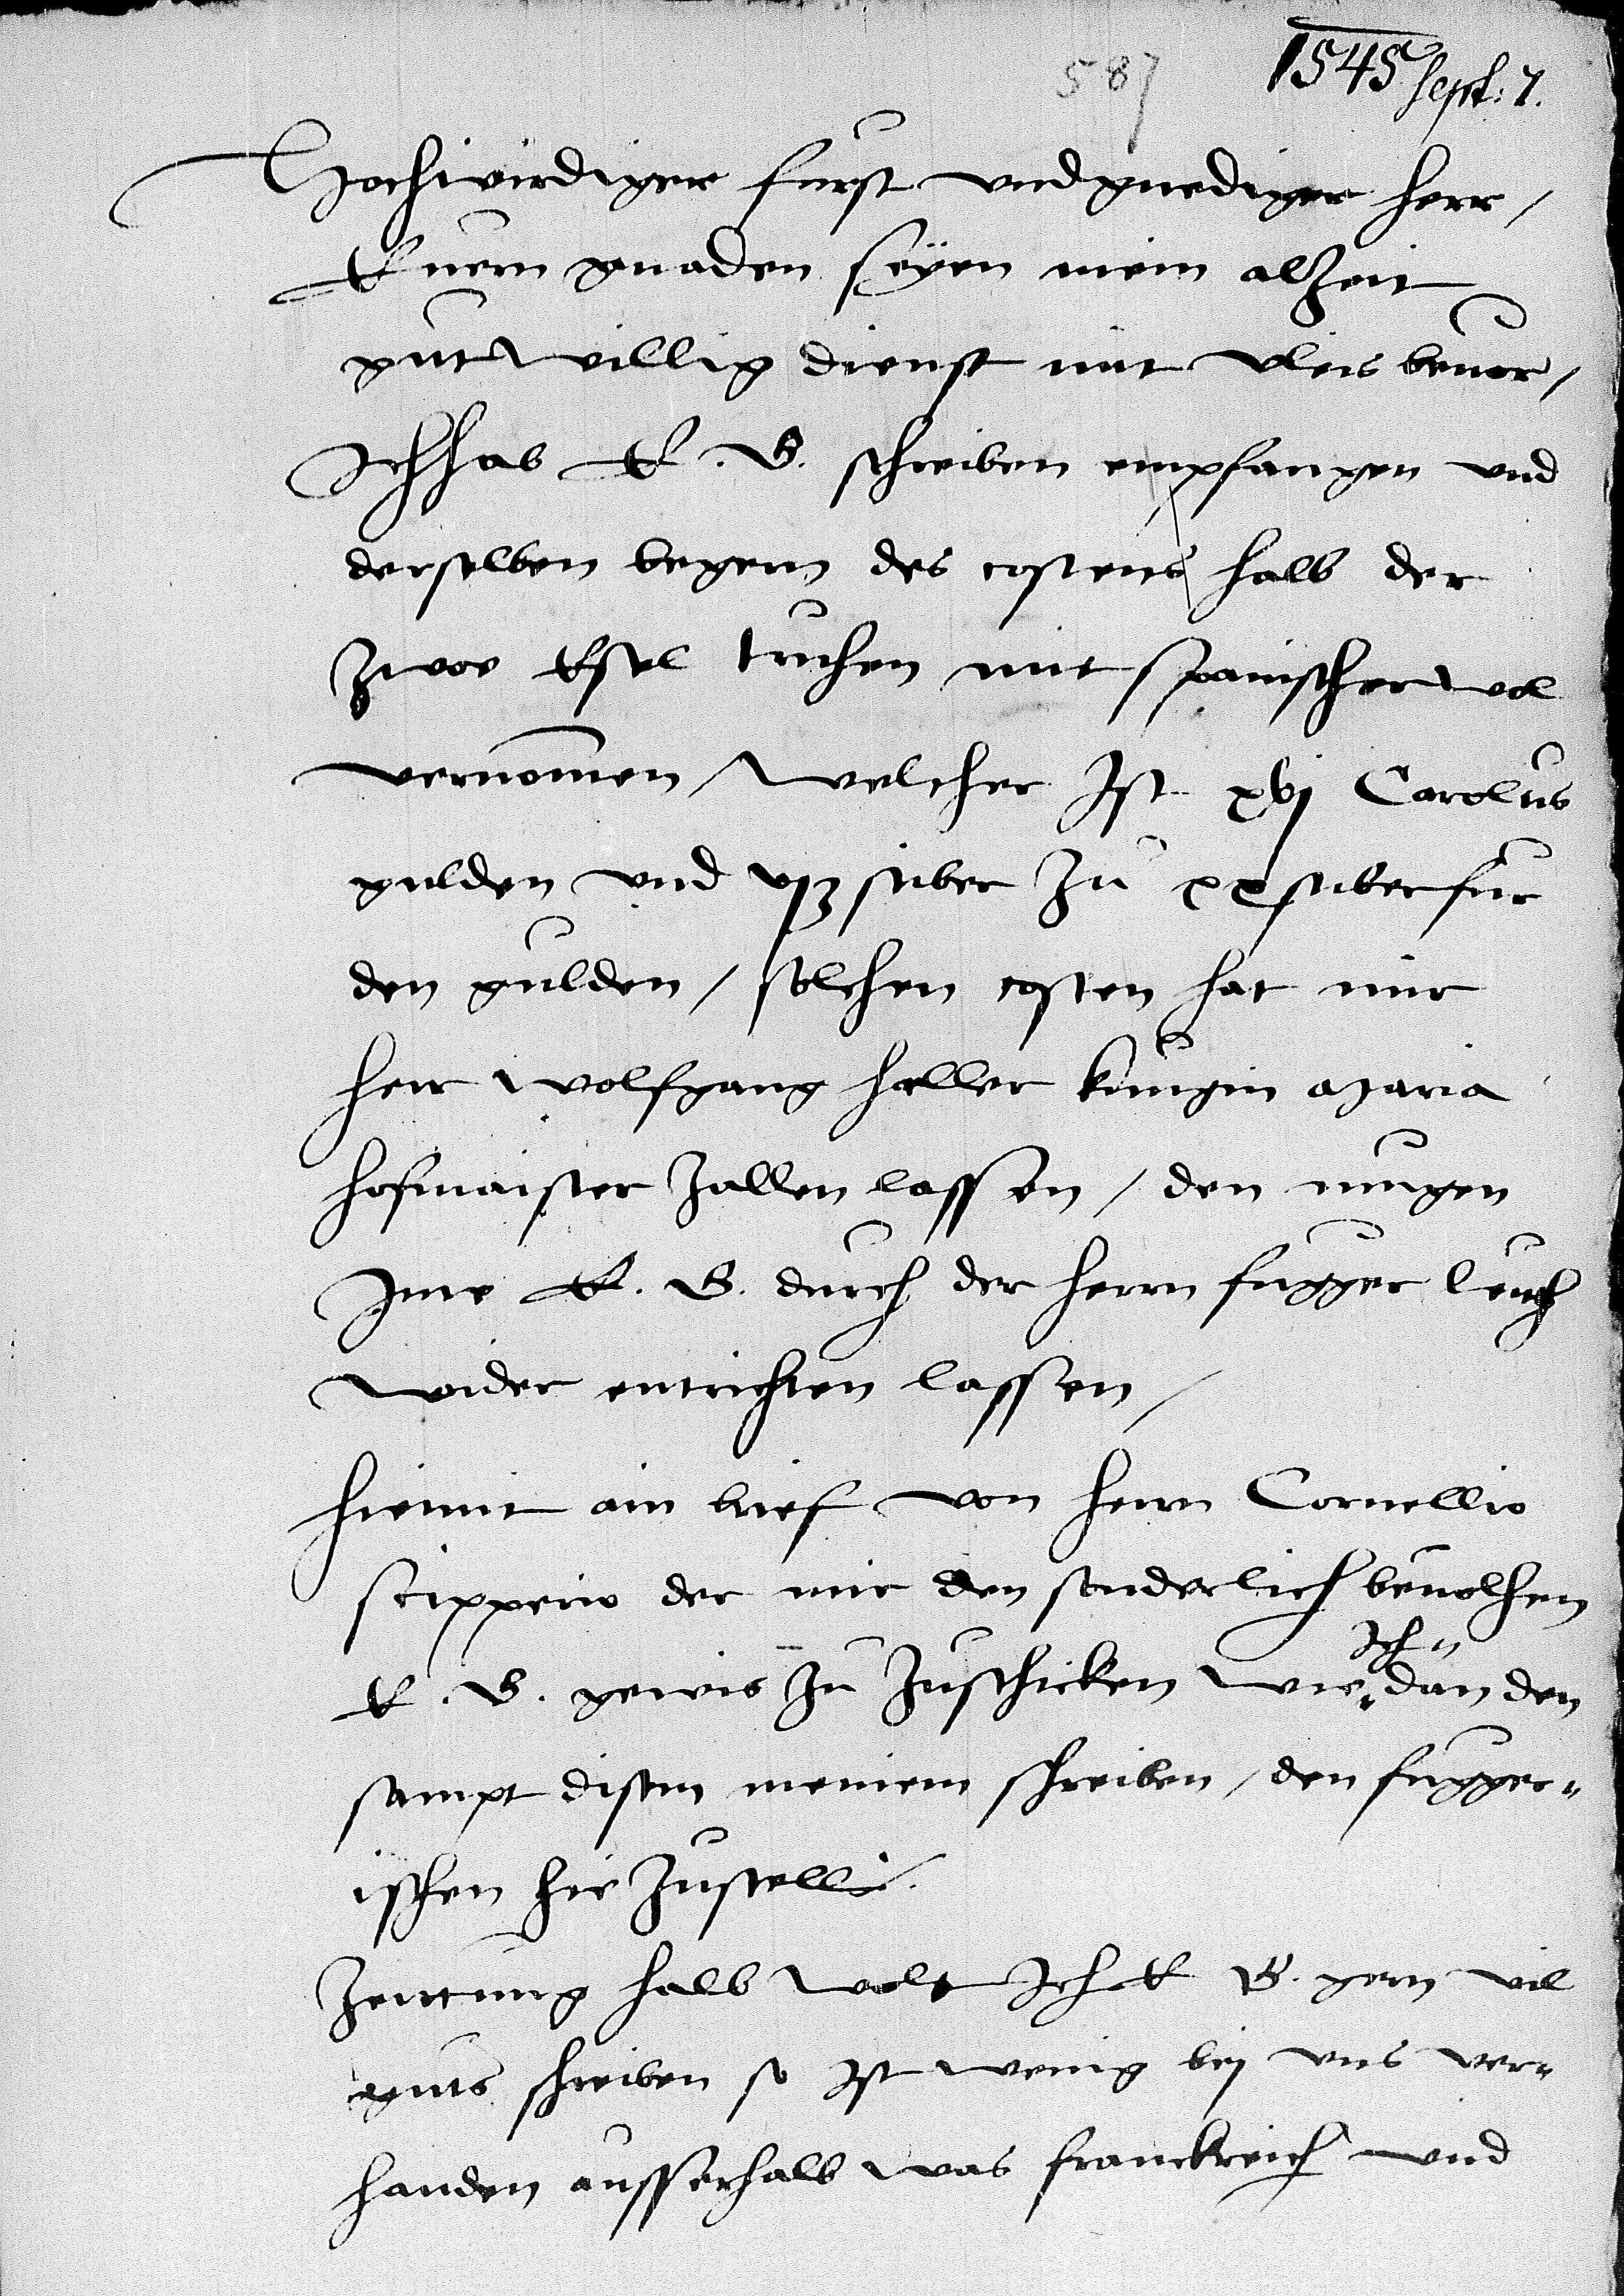 587 1545 Sept: 7.
Hochwirdiger furst vnd gnediger herr /
Euern gnaden seÿen mein alzeit
gut willig dienst mit vleis beuor /
Ich hab E. G. schreiben empfangen vnd
derselben begern des costens halb der
zwoe Esel truhen mit spanischer wol
vernomen / welcher Ist xvj Carolus
gulden vnd stuber zu xx stuber fur
den gulden / solchen costen hat mir
herr wolfgang haller kunigin Maria
hofmaister zallen lassen / den mugen
Ime E. G. durch der herrn fugger leuth
wider entrichten lassen /
hiemit ain brief von herrn Cornellio
scipperio der mir den sonderlich beuolhen
E. G. gewis zu zuschicken wie Ich dan den
sampt disem meinem schreiben / den fugger-
ischen hie zustelle.
Zeittung halb wolt Ich E G. gern vil
guts schreiben so Ist wenig bej vns ver-
handen ausserhalb was franckreich vnd